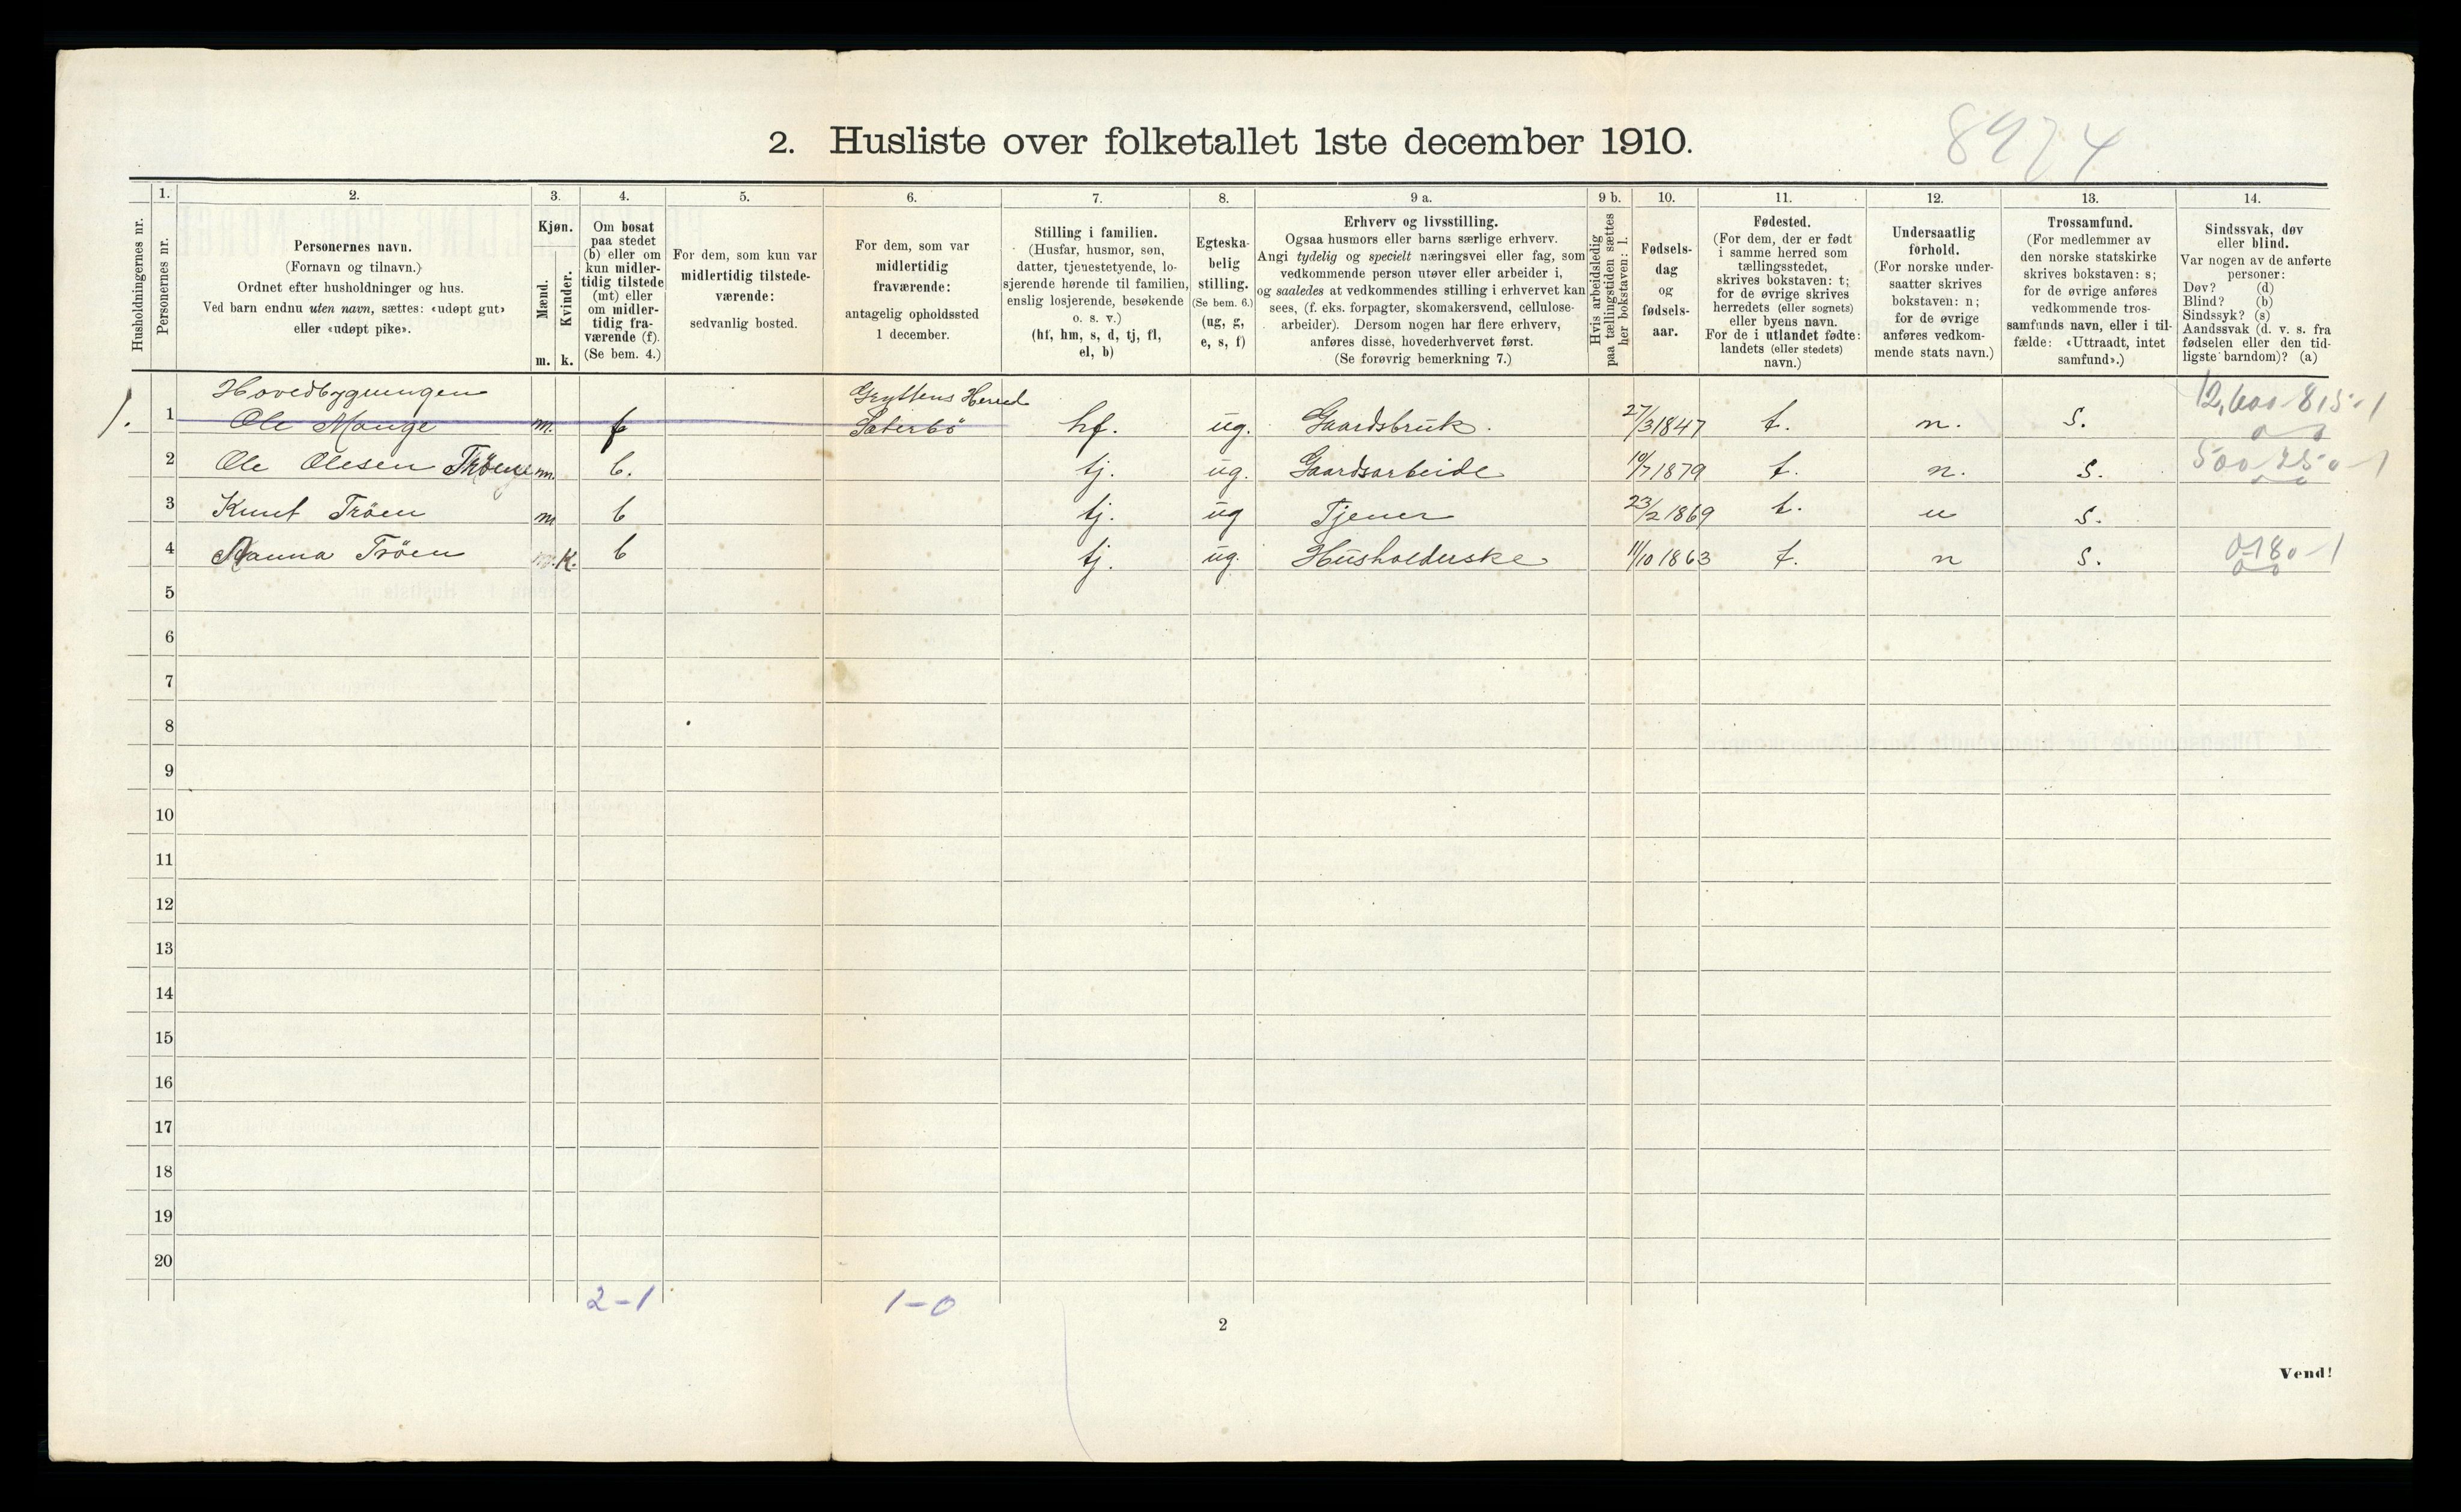 8924
2. Husliste over folketallet 1ste december 1910.
Husholdningernes nr.
1.
Personernes nr.
2.
Personernes navn.
(Fornavn og tilnavn.)
Ordnet efter husholdninger og hus.
Ved barn endnu uten navn, sættes: «udøpt gut»
eller «udøpt pike».
3.
Kjøn.
Mænd.
Kvinder.
m. k.
4.
Om bosat
paa stedet
(b) eller om
kun midler-
tidig tilstede
(mt) eller
om midler-
tidig fra-
værende (f).
(Se bem. 4.)
5.
For dem, som kun var
midlertidig tilstede-
værende:
sedvanlig bosted.
6.
For dem, som var
midlertidig
fraværende:
antagelig opholdssted
1 december.
7.
Stilling i familien.
(Husfar, husmor, søn,
datter, tjenestetyende, lo-
sjerende hørende til familien,
enslig losjerende, besøkende
o. s. v.)
(hf, hm, s, d, tj, fl,
el, b)
8.
Egteska-
belig
stilling.
(Se bem. 6.)
(ug, g,
e, s, f)
9 a.
Erhverv og livsstilling.
Ogsaa husmors eller barns særlige erhverv.
Angi tydelig og specielt næringsvei eller fag, som
vedkommende person utøver eller arbeider i,
og saaledes at vedkommendes stilling i erhvervet kan
sees, (f. eks. forpagter, skomakersvend, cellulose-
arbeider). Dersom nogen har flere erhverv,
anføres disse, hovederhvervet først.
(Se forøvrig bemerkning 7.)
9 b.
Hvis arbeidsledig
paa tællingstiden sættes
her bokstaven: l.
10.
Fødsels-
dag
og
fødsels-
aar.
11.
Fødested.
(For dem, der er født
i samme herred som
tællingsstedet,
skrives bokstaven: t;
for de øvrige skrives
herredets (eller sognets)
eller byens navn.
For de i utlandet fødte:
landets (eller stedets)
navn.)
12.
Undersaatlig
forhold.
(For norske under-
saatter skrives
bokstaven: n;
for de øvrige
anføres vedkom-
mende stats navn.)
13.
Trossamfund.
(For medlemmer av
den norske statskirke
skrives bokstaven: s;
for de øvrige anføres
vedkommende tros-
samfunds navn, eller i til-
fælde: «Uttraadt, intet
samfund».)
14.
Sindssvak, døv
eller blind.
Var nogen av de anførte
personer:
Døv? (d)
Blind? (b)
Sindssyk? (s)
Aandssvak (d. v. s. fra
fødselen eller den tid-
ligste barndom)? (a)
Hovedbygningen Gryttens Herred 12,600-815-1
1. 1 Ole Mange m. f Sæterbö hf. ug. Gaardsbruk. 27/3 1847 t. n. s.
2 Ole Olesen Tröen m. b. tj. ug. Gaardsarbeide 10/7 1879 t. n. s. 500-250-1
3 Knut Tröen m b tj. ug Tjener 23/2 1869 t. n s.
4 Nanna Tröen k. b tj. ug. Husholderske 11/10 1863 t. n s. 0-180-1
5
6
7
8
9
10
11
12
13
14
15
16
17
18
19
20
2-1 1-0
2
Vend!